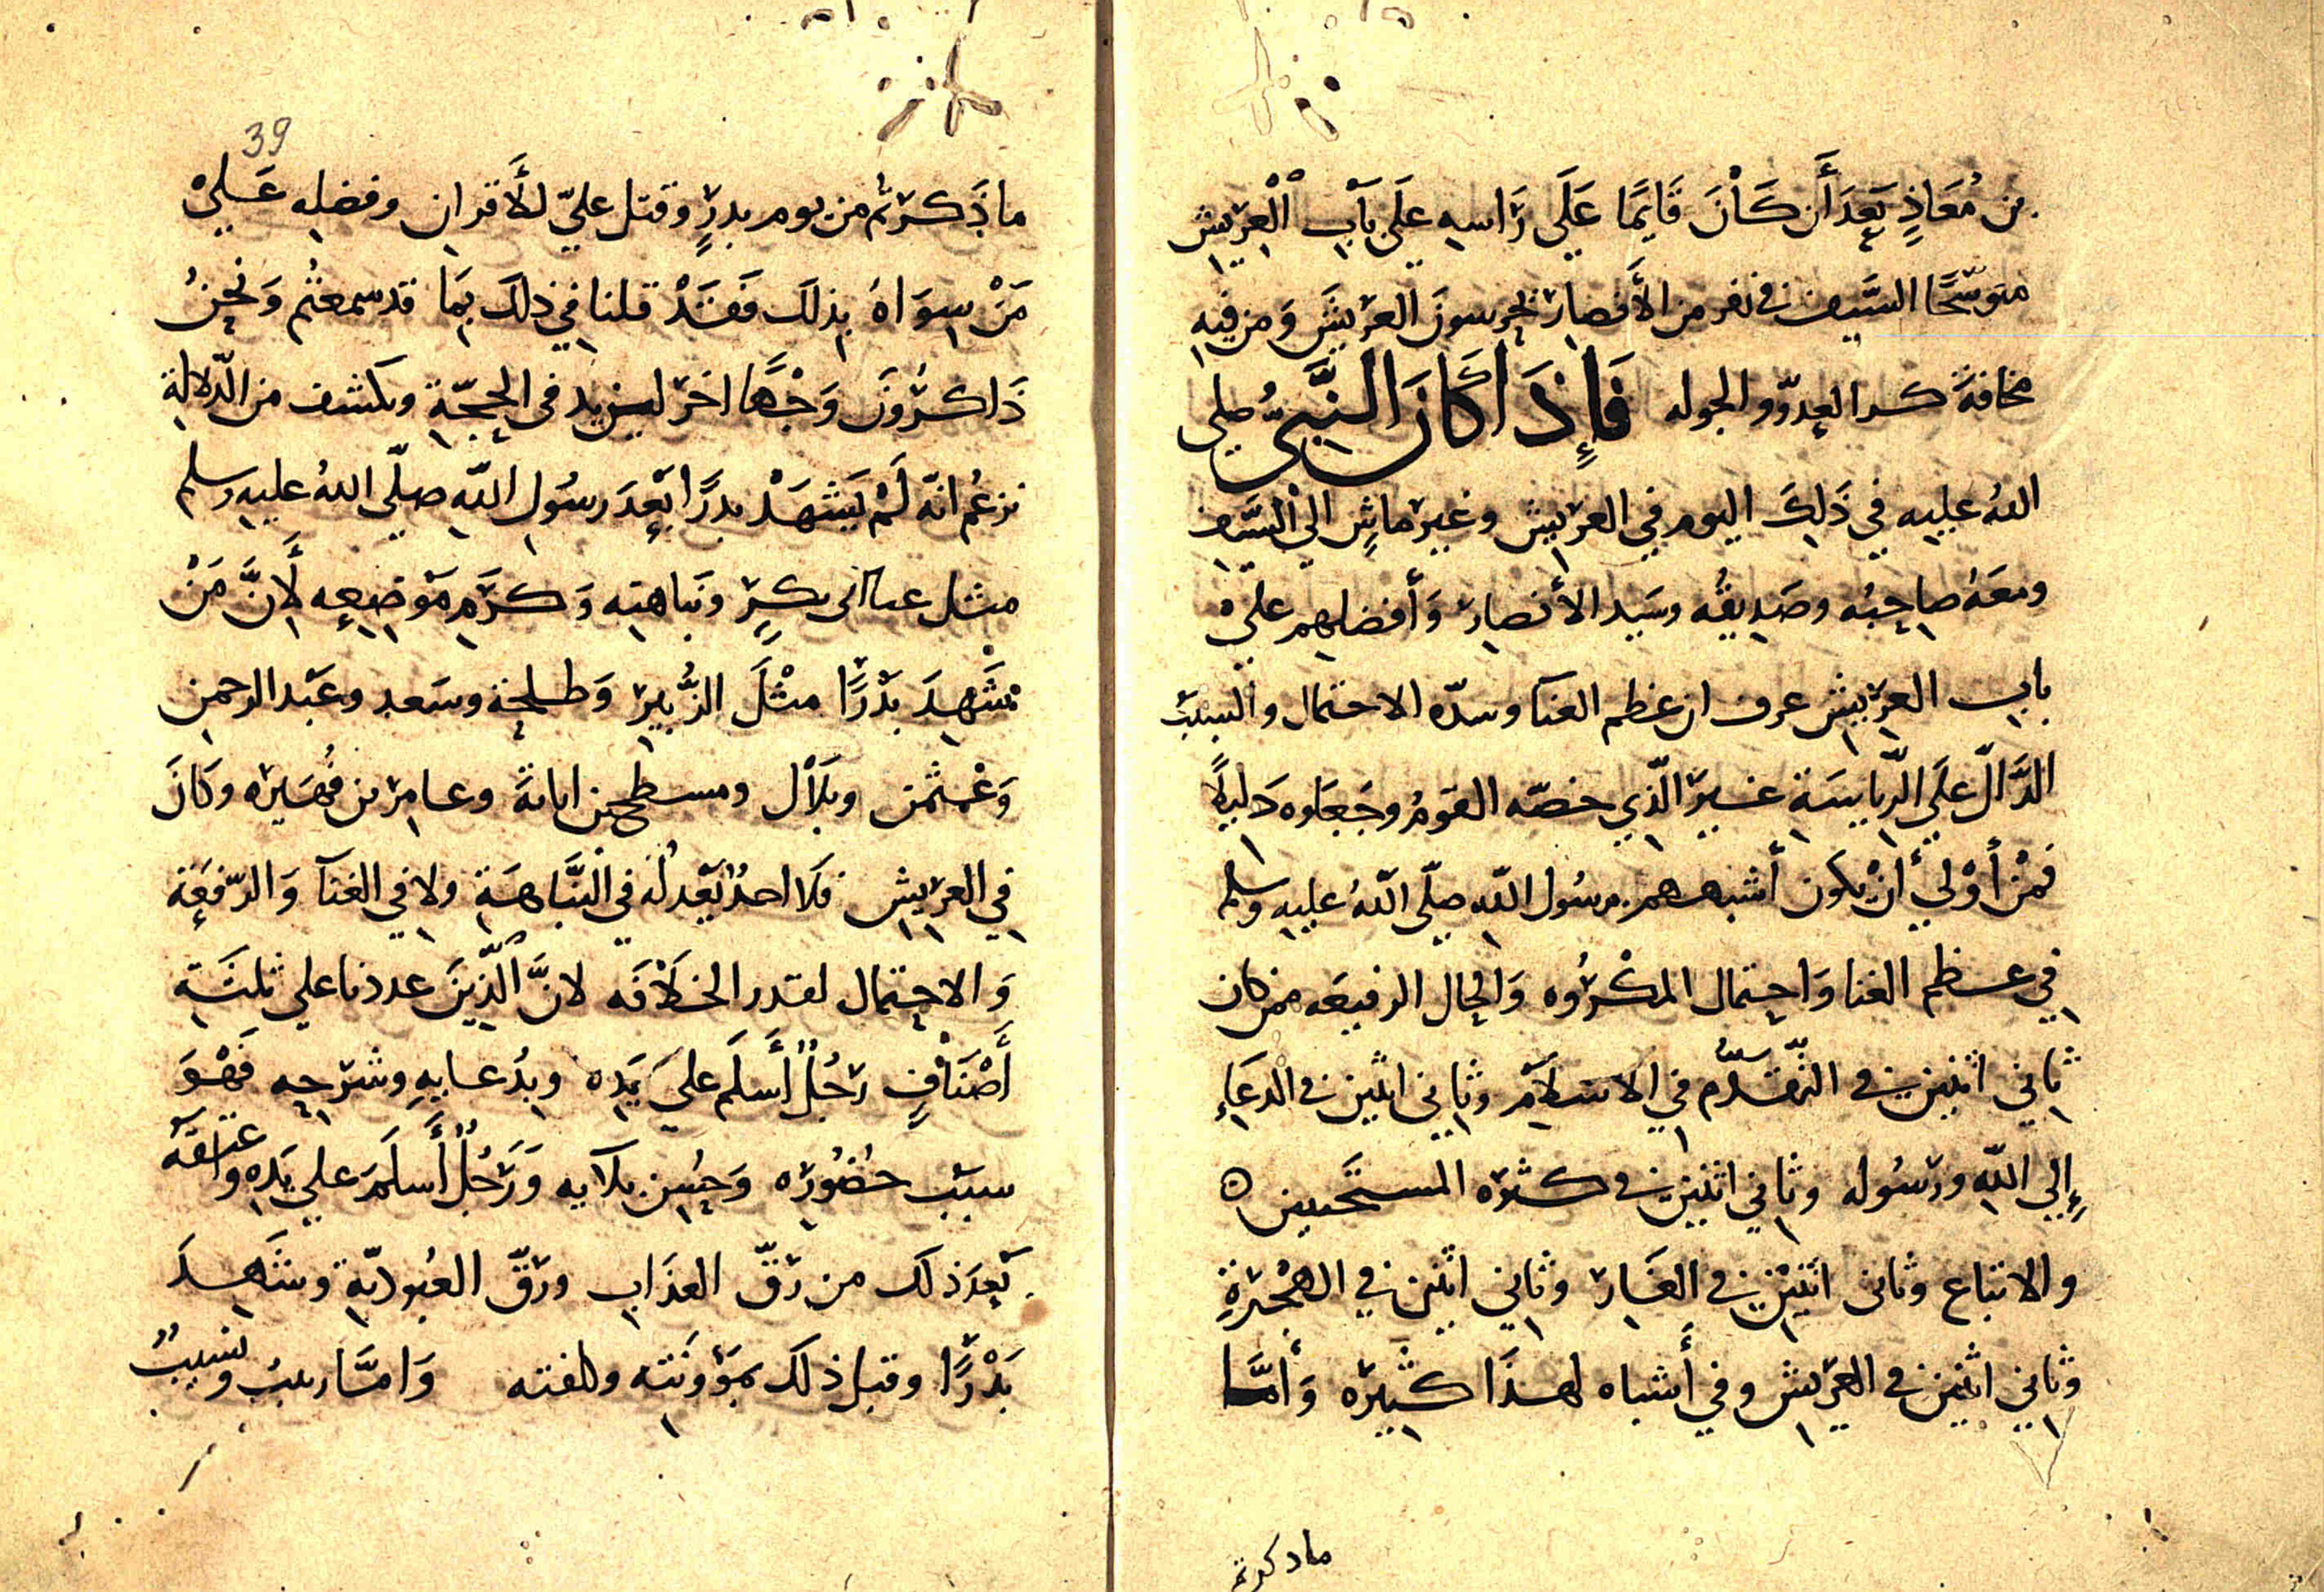 بن مُعَاذٍ بَعدَ أَن كَانَ قَايمًا عَلَي رَاسه علَي بَاب الْعريش
متوشّحًا السَّيف في نفر من الأَنصار يحرسونَ العريشَ وَمن فيه
مخافةَ كر العدوّ والجوله فَإِذَا كَانَ النَّبيُّ صلى
اللهُ عليه في ذَلِكَ اليوم في العريش وغير ماشٍ الي السَّيف
ومعَهُ صاحبُه وصَديقُه وسَيد الأنصار وَأفضلهم علي
باب العريش عرف ان عظم الغنآ وشدّه الاحتمال والسبب
الدَّالّ علَي الرّياسَة غيرَ الّذي خصّه القومُ وجَعَلوه دَليلًا
فمْن أوْلي أنْ يكون أشبههم برسُول اللّه صلّى اللّهُ عليه وسلم
في عظم الغنا وَاحتمال المكْرُوه وَالحال الرفيعَه ممن كان
ثاني اثنين في التّقدُّم في الاسلَام وثاني اثنين في الدعَاءِ
إِلي اللّه ورسُوله وثاني اثنين في كثره المستَجيبين ه
والاتباع وثاني اثنيْن في الغَار وثاني اثنين في الهجْرةِ
وثاني اثنين في العريش وفي أَشباه لهذَا كثيَره وَأمَّا
ما ذكرتم
39
ما ذَكرتُم من يوم بدرٍ وقتل عليّ للأَقران وفضله عَلي
مَنْ سِوَاهُ بذلك فَقَدْ قلنا في ذلكَ بمَا قد سمعتُم وَنحنُ
ذَاكرُونَ وَجْهًا اخر ليزيد في الحجّة ويكشف من الدّلالة
نزعُم انّه لَمْ يَشْهَدْ بدرًا بَعْدَ رسُول اللّه صلّى اللهُ عليه وسلم
مثل غنا ابى بكرٍ ونَباهته وَكرَم مَوْضِعِه لأنَّ مَنْ
شَهِدَ بدْرًا مثْلَ الزُّبير وَطلحَة وسَعد وعَبْد الرحمن
وَعْثمن وبلَال ومسطح بن اثاثةَ وعامر بن فُهَيره وكَانَ
في العريش فلَا احدٌ يَعْدِلُه في النَّباهَة ولا في الغنآ وَالرّفعَة
وَالاحتمال لقدر الخلَافَه لانَّ الَّذينَ عددنا علي ثلثَة
أَصْنَافٍ رجُلٌ أَسلَم عليَ يَدِه وبدُعايهِ وشرحِه فَهْوَ
سبب حضُورِه وَحُسن بلآيه وَرَجُلٌ أَسلَمَ علي يَدِه وأعتقه
بَعدَ ذلك من رَقّ العذَاب ورقّ العبُوديّة وشَهِدَ
بَدْرًا وقبل ذلكَ بمؤونَته وكلفته وَامَّا رببُ ونسيبٌ